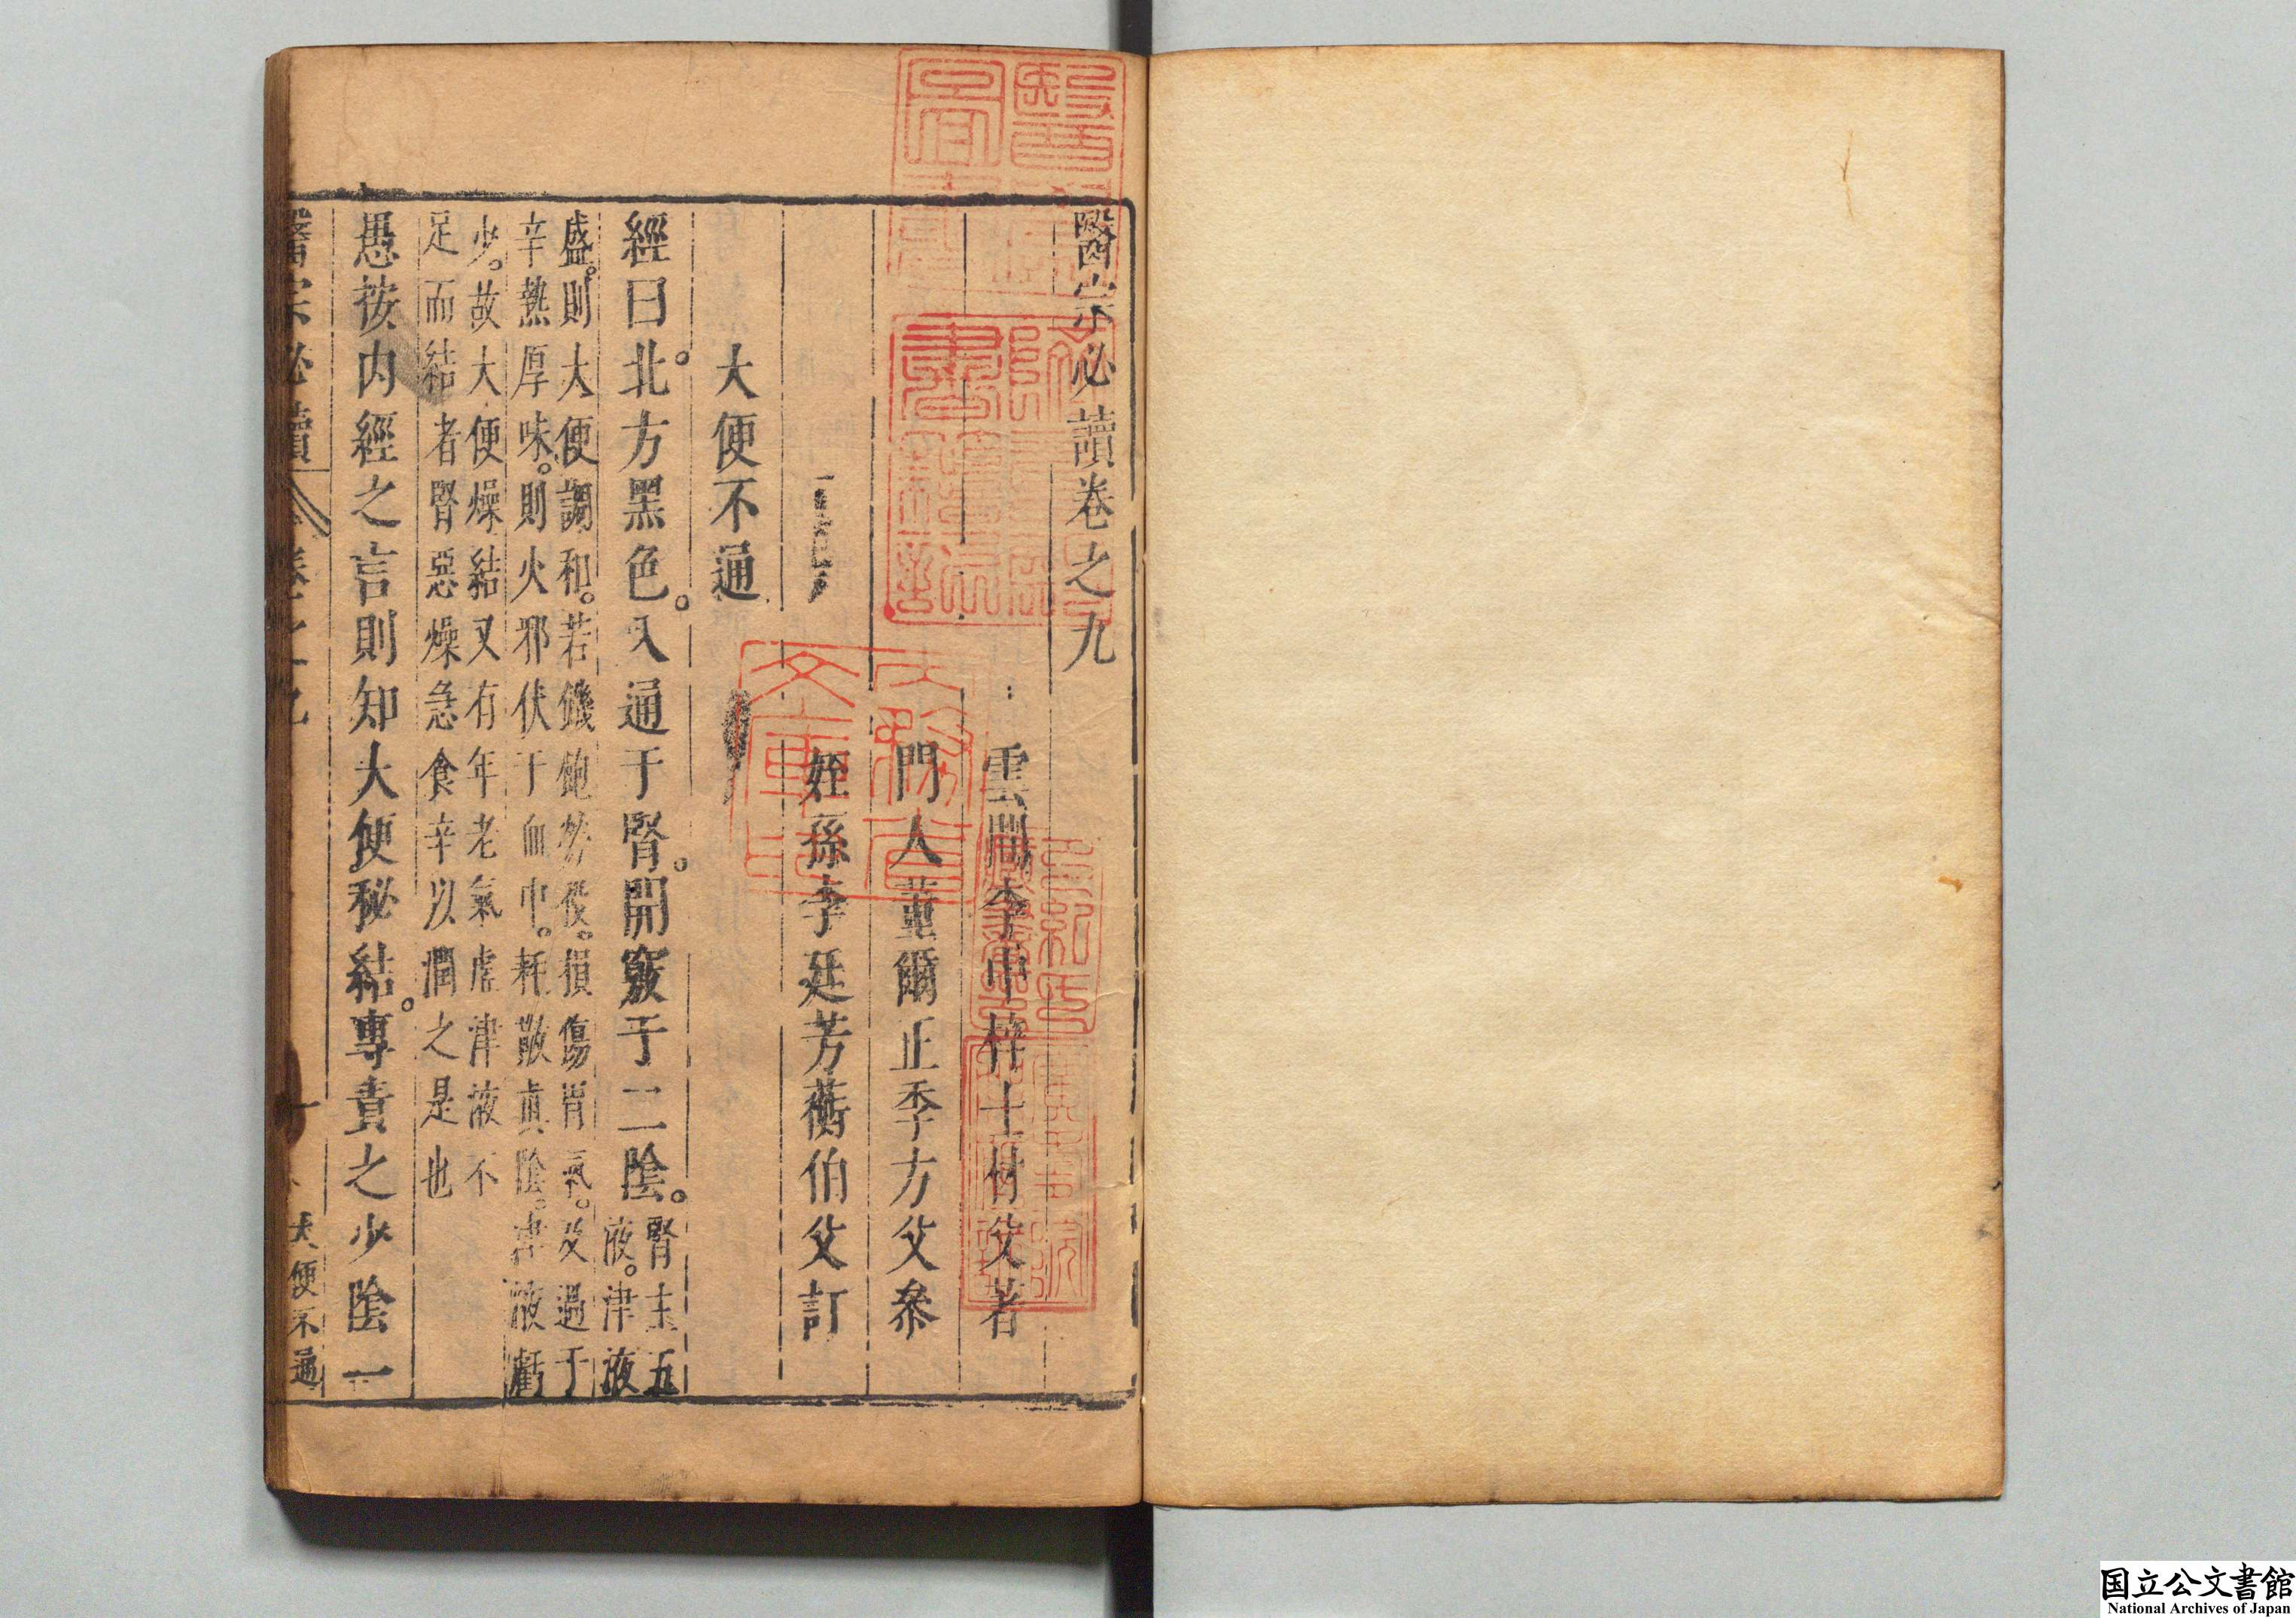 醫宗必讀卷之九
雲間李中梓士材父著
門人董爾正季方父叅
姪孫李廷芳蘅伯父訂
大便不通
經曰。北方黑色。入通于腎。開竅于二陰。腎主五
液。津液
盛。則大便調和。若饑飽勞役。損傷胃氣。及過于
辛熱厚味。則火邪伏于血中。耗散眞陰。津液虧
少。故大便燥結又有年老氣虛津液不
足而結者腎惡燥急食辛以潤之是也
愚按内經之言則知大便秘結。專責之少陰一
醫宗必讀 卷之九 一 大便不通
文庫
国立公文書館
National Archives of Japan